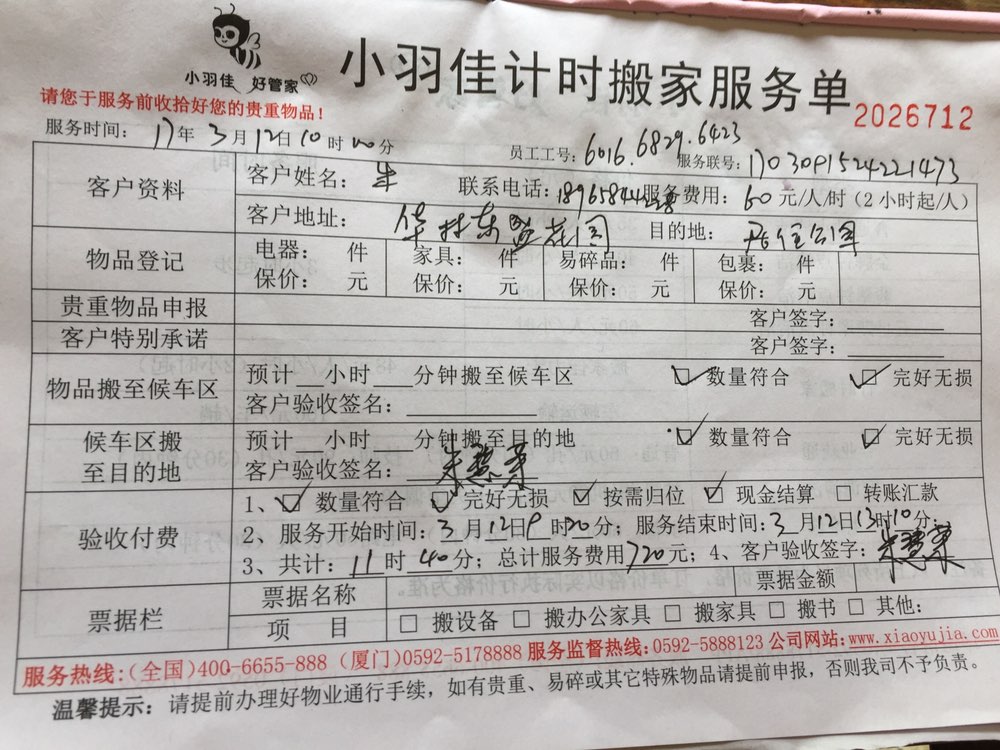 小羽佳 好管家
小羽佳计时搬家服务单
2026712
请您于服务前收拾好您的贵重物品！
服务时间： 17年 3月 12日 10时 00分
员工工号：6016.6829.6423
服务联号：
客户资料
客户姓名： 朱 联系电话： 服务费用： 60 元/人/时（2小时起/人）
客户地址： 华林东盛花园 目的地： 居住公园
物品登记
电器： 件 家具： 件 易碎品： 件 包裹： 件
保价： 元 保价： 元 保价： 元 保价： 元
贵重物品申报 客户签字：
客户特别承诺 客户签字：
物品搬至候车区
预计 小时 分钟搬至候车区 数量符合 完好无损
客户验收签名：
候车区搬至目的地
预计 小时 分钟搬至目的地 数量符合 完好无损
客户验收签名： 朱慧英
验收付费
1、 数量符合 完好无损 按需归位 现金结算 转账汇款
2、服务开始时间：3月12日9时20分；服务结束时间：3月12日13时10分；
3、共计：11时40分；总计服务费用720元；4、客户验收签字：朱慧英
票据栏
票据名称 票据金额
项 目 搬设备 搬办公家具 搬家具 搬书 其他：
服务热线：(全国)400-6655-888 (厦门)0592-5178888 服务监督热线：0592-5888123 公司网站：www.xiaoyujia.com
温馨提示：请提前办理好物业通行手续，如有贵重、易碎或其它特殊物品请提前申报，否则我司不予负责。